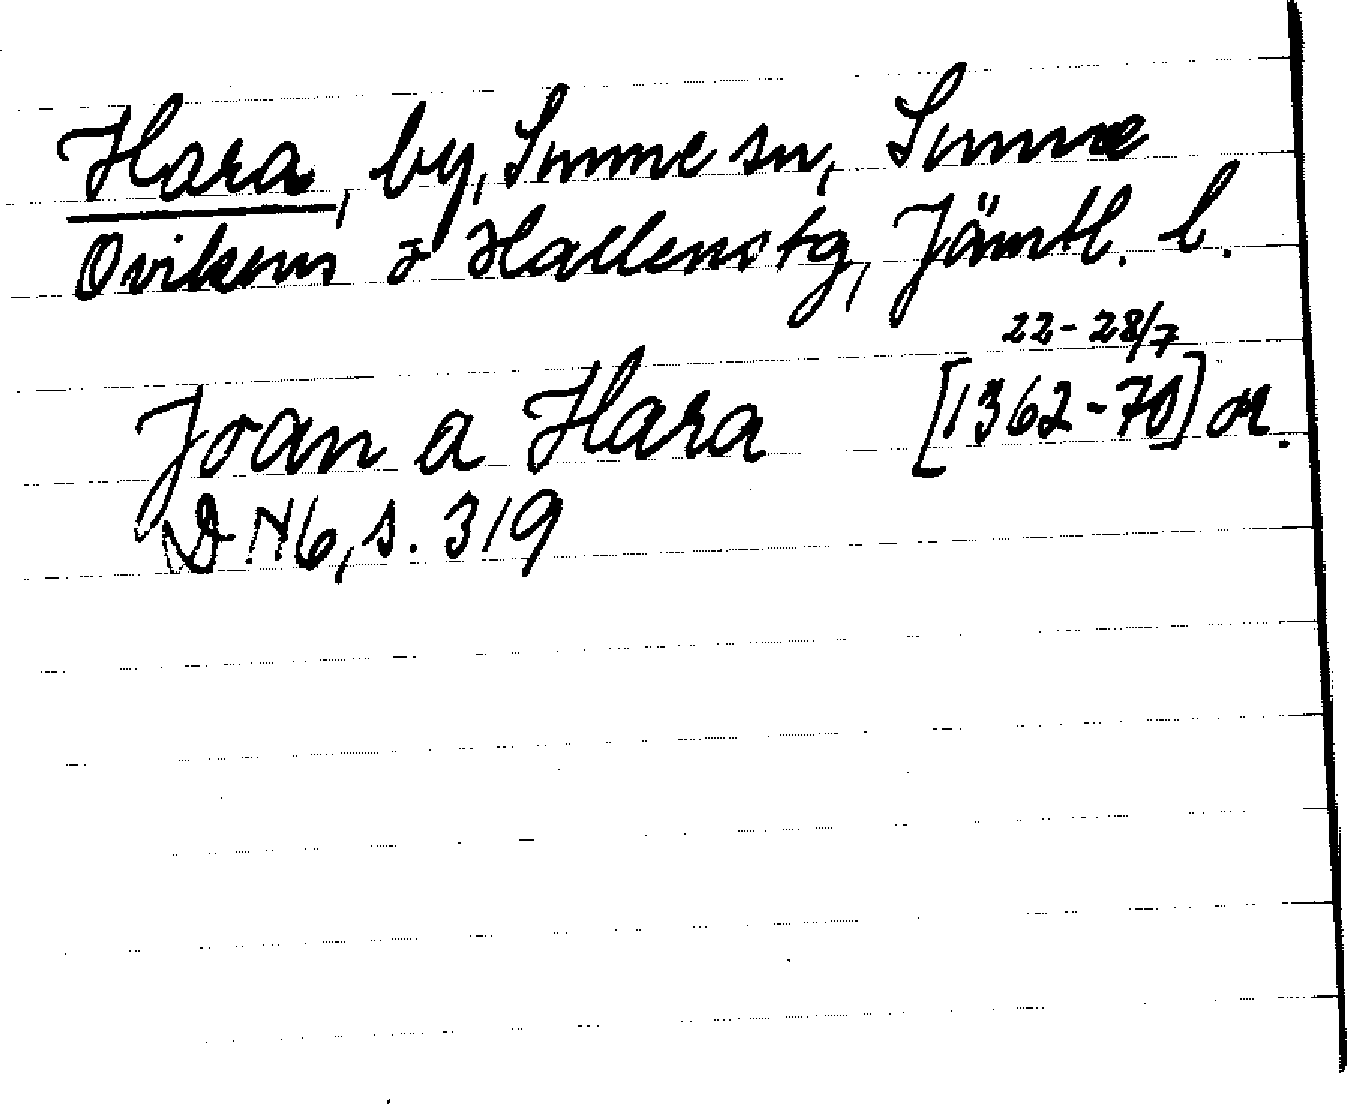 Hara, by, Sunne sn, Sunne
Ovikens o Hallens tg, Jämtl. l.
22-28/7
Joan a Hara [1362-70] or.
DN 16, s. 319